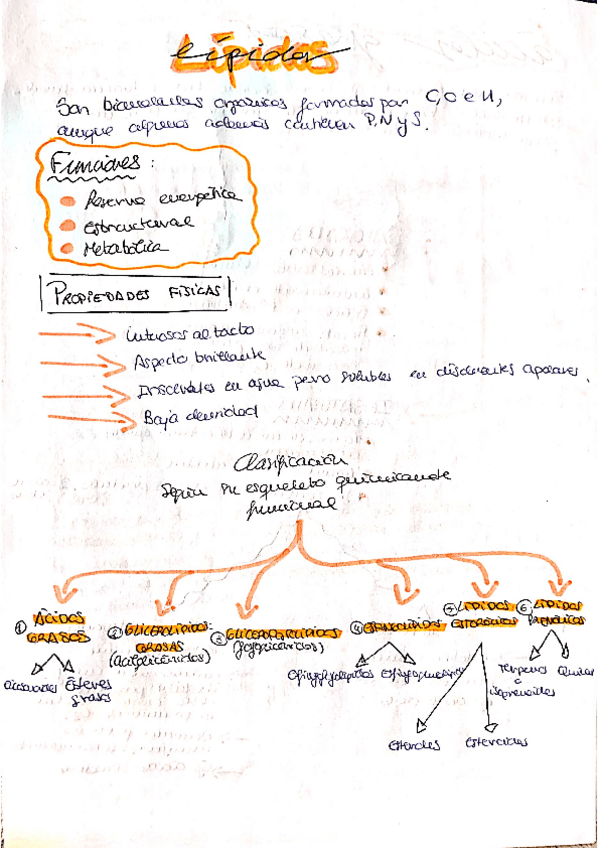 Lípidos
Son biomoléculas orgánicas formadas por C, O e H,
aunque algunos además contienen P, N y S.
Funciones:
Reserva energética
Estructural
Metabólica
PROPIEDADES FÍSICAS
Untuosos al tacto
Aspecto brillante
Insolubles en agua pero solubles en disolventes apolares.
Baja densidad
Clasificación
Según su esqueleto
funcional
① ÁCIDOS GRASOS
② GLICEROLÍPIDOS: GRASAS (Acilglicéridos)
③
④ ESFINGOLÍPIDOS
⑤ LÍPIDOS
⑥ LÍPIDOS PRENÓLICOS
Ésteres grasos
Terpenos o isoprenoides
Quinonas
esteroles
esteroides